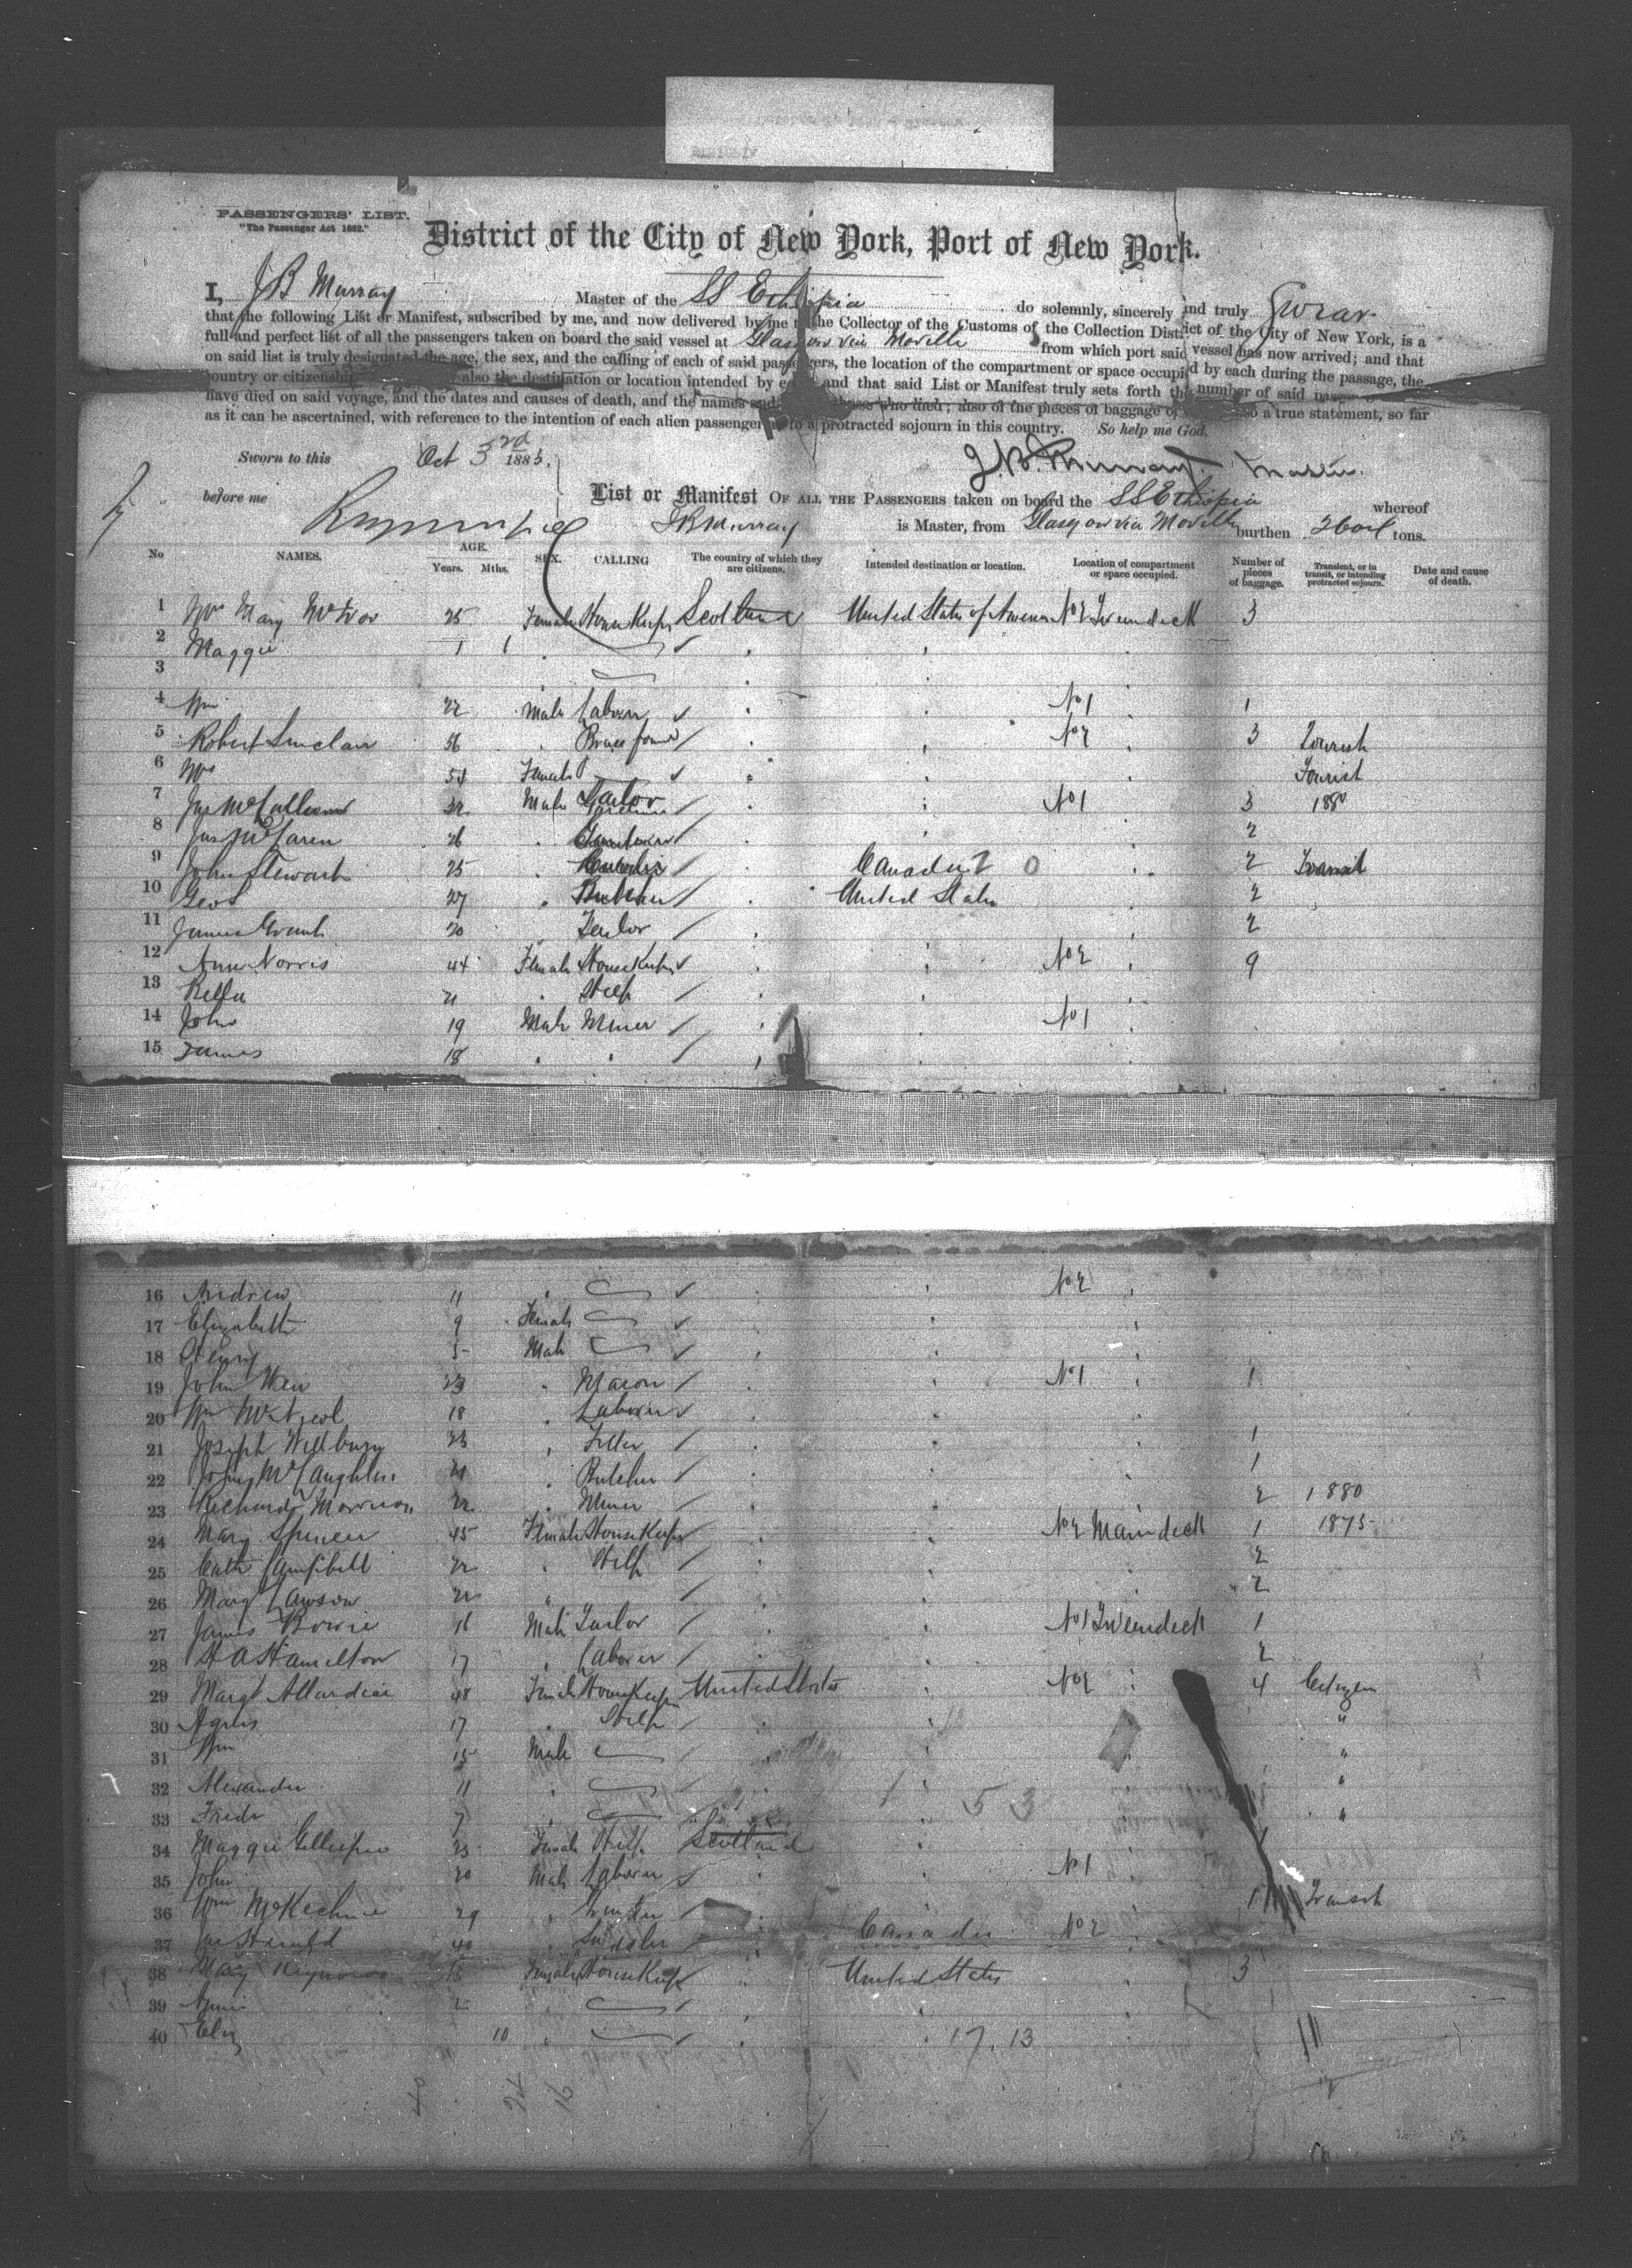 PASSENGERS' LIST.
"The Passenger Act 1882."
District of the City of New York, Port of New York.
I, J B Murray Master of the SS Ethiopia do solemnly, sincerely and truly Swear
that the following List or Manifest, subscribed by me, and now delivered by me to the Collector of the Customs of the Collection District of the City of New York, is a
full and perfect list of all the passengers taken on board the said vessel at Glasgow via Moville from which port said vessel has now arrived; and that
on said list is truly designated the age, the sex, and the calling of each of said passengers, the location of the compartment or space occupied by each during the passage, the
country or citizenship also the destination or location intended by and that said List or Manifest truly sets forth the number of said
have died on said voyage, and the dates and causes of death, and the names and those who died; also of the pieces of baggage of also a true statement, so far
as it can be ascertained, with reference to the intention of each alien passenger as to a protracted sojourn in this country. So help me God.
Sworn to this Oct 3rd 1883. J. B. Murray. Master.
before me List or Manifest OF ALL THE PASSENGERS taken on board the SS Ethiopia whereof
J B Murray is Master, from Glasgow via Moville burthen tons.
No NAMES. AGE. Years. Mths. SEX. CALLING The country of which they are citizens. Intended destination or location. Location of compartment or space occupied. Number of pieces of baggage. Transient, or in transit, or intending protracted sojourn. Date and cause of death.
1 Mrs Mary 25 Female House Keeper Scotland United States of America No 2 Tweendeck 3
2 Maggie 1
3
4 Wm 22 Male Laborer No 1 1
5 Robert Sinclair 56 No 2 3 Tourist
6 Mrs 54 Female Tourist
7 Jas McCallum Male No 1 3 1880
8 Jas McLaren 26 2
9 John Stewart 25 Canada 2 Transit
10 Geo 27 Butcher United States 2
11 James Grant 20 2
12 Ann Norris 44 Female House Keeper No 2 9
13 Bella 21 Help
14 John 19 Male Miner No 1
15 James 18
16 Andrew 11 No 2
17 Elizabeth 9 Female
18 Henry 5 Male
19 John Weir Mason No 1 1
20 Wm McNicol 18 Laborer
21 Joseph 23 1
22 John McLaughlin 21 Butcher 1
23 Richard Morrison 22 Miner 2 1880
24 Mary Spencer 45 Female House Keeper No 2 Maindeck 1 1875
25 Cath Campbell 22 Help 2
26 Margt Lawson 2
27 James Bowie 16 Male Tailor No 1 Tweendeck 1
28 Hamilton 17 Laborer 2
29 Margt Allardice 48 Female House Keeper United States No 2 4 Citizen
30 Agnes 17 Help "
31 Wm 15 Male "
32 Alexander 11 "
33 Fredr 7 "
53
34 Maggie Gillespie 23 Female Help Scotland
35 John 20 Male Laborer No 1
36 Wm McKechnie 29 1 Transit
37 40 Canada No 2
38 Female House Keeper United States 3
39 Annie 2
40 Eliz 10
17.13